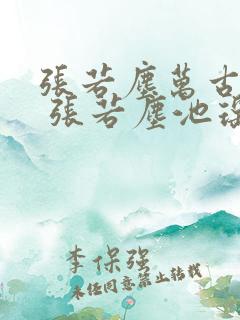 張若塵萬古
張若塵池
李保强
未经同意禁止转载